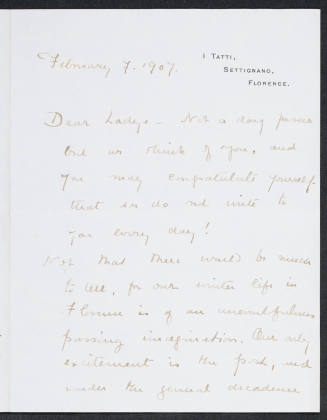 I TATTI,
SETTIGNANO,
FLORENCE.
February 7. 1907.
Dear Ladys - Not a day passes
but we think of you, and
you may congratulate yourself
that we do not write to
you every day!
Not that there would be much
to tell, for our winter life in
Florence is of an uneventfulness
passing imagination. Our only
excitement is the post, and
under the general decadence